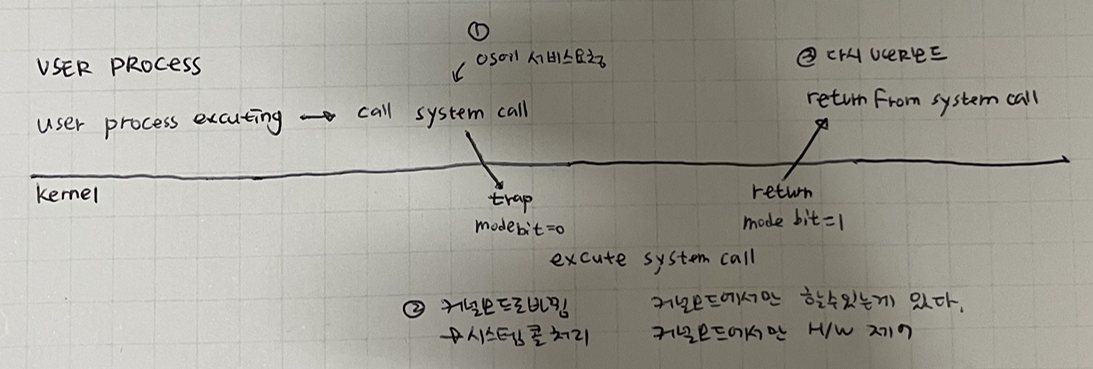 ①
OS에 서비스요청
USER PROCESS
③ 다시 user모드
user process excuting → call system call
return From system call
kernel
trap
mode bit=0
return
mode bit=1
excute system call
② 커널모드로바뀜
커널모드에서만 할수있는게 있다.
→시스템콜처리
커널모드에서만 H/W 제어